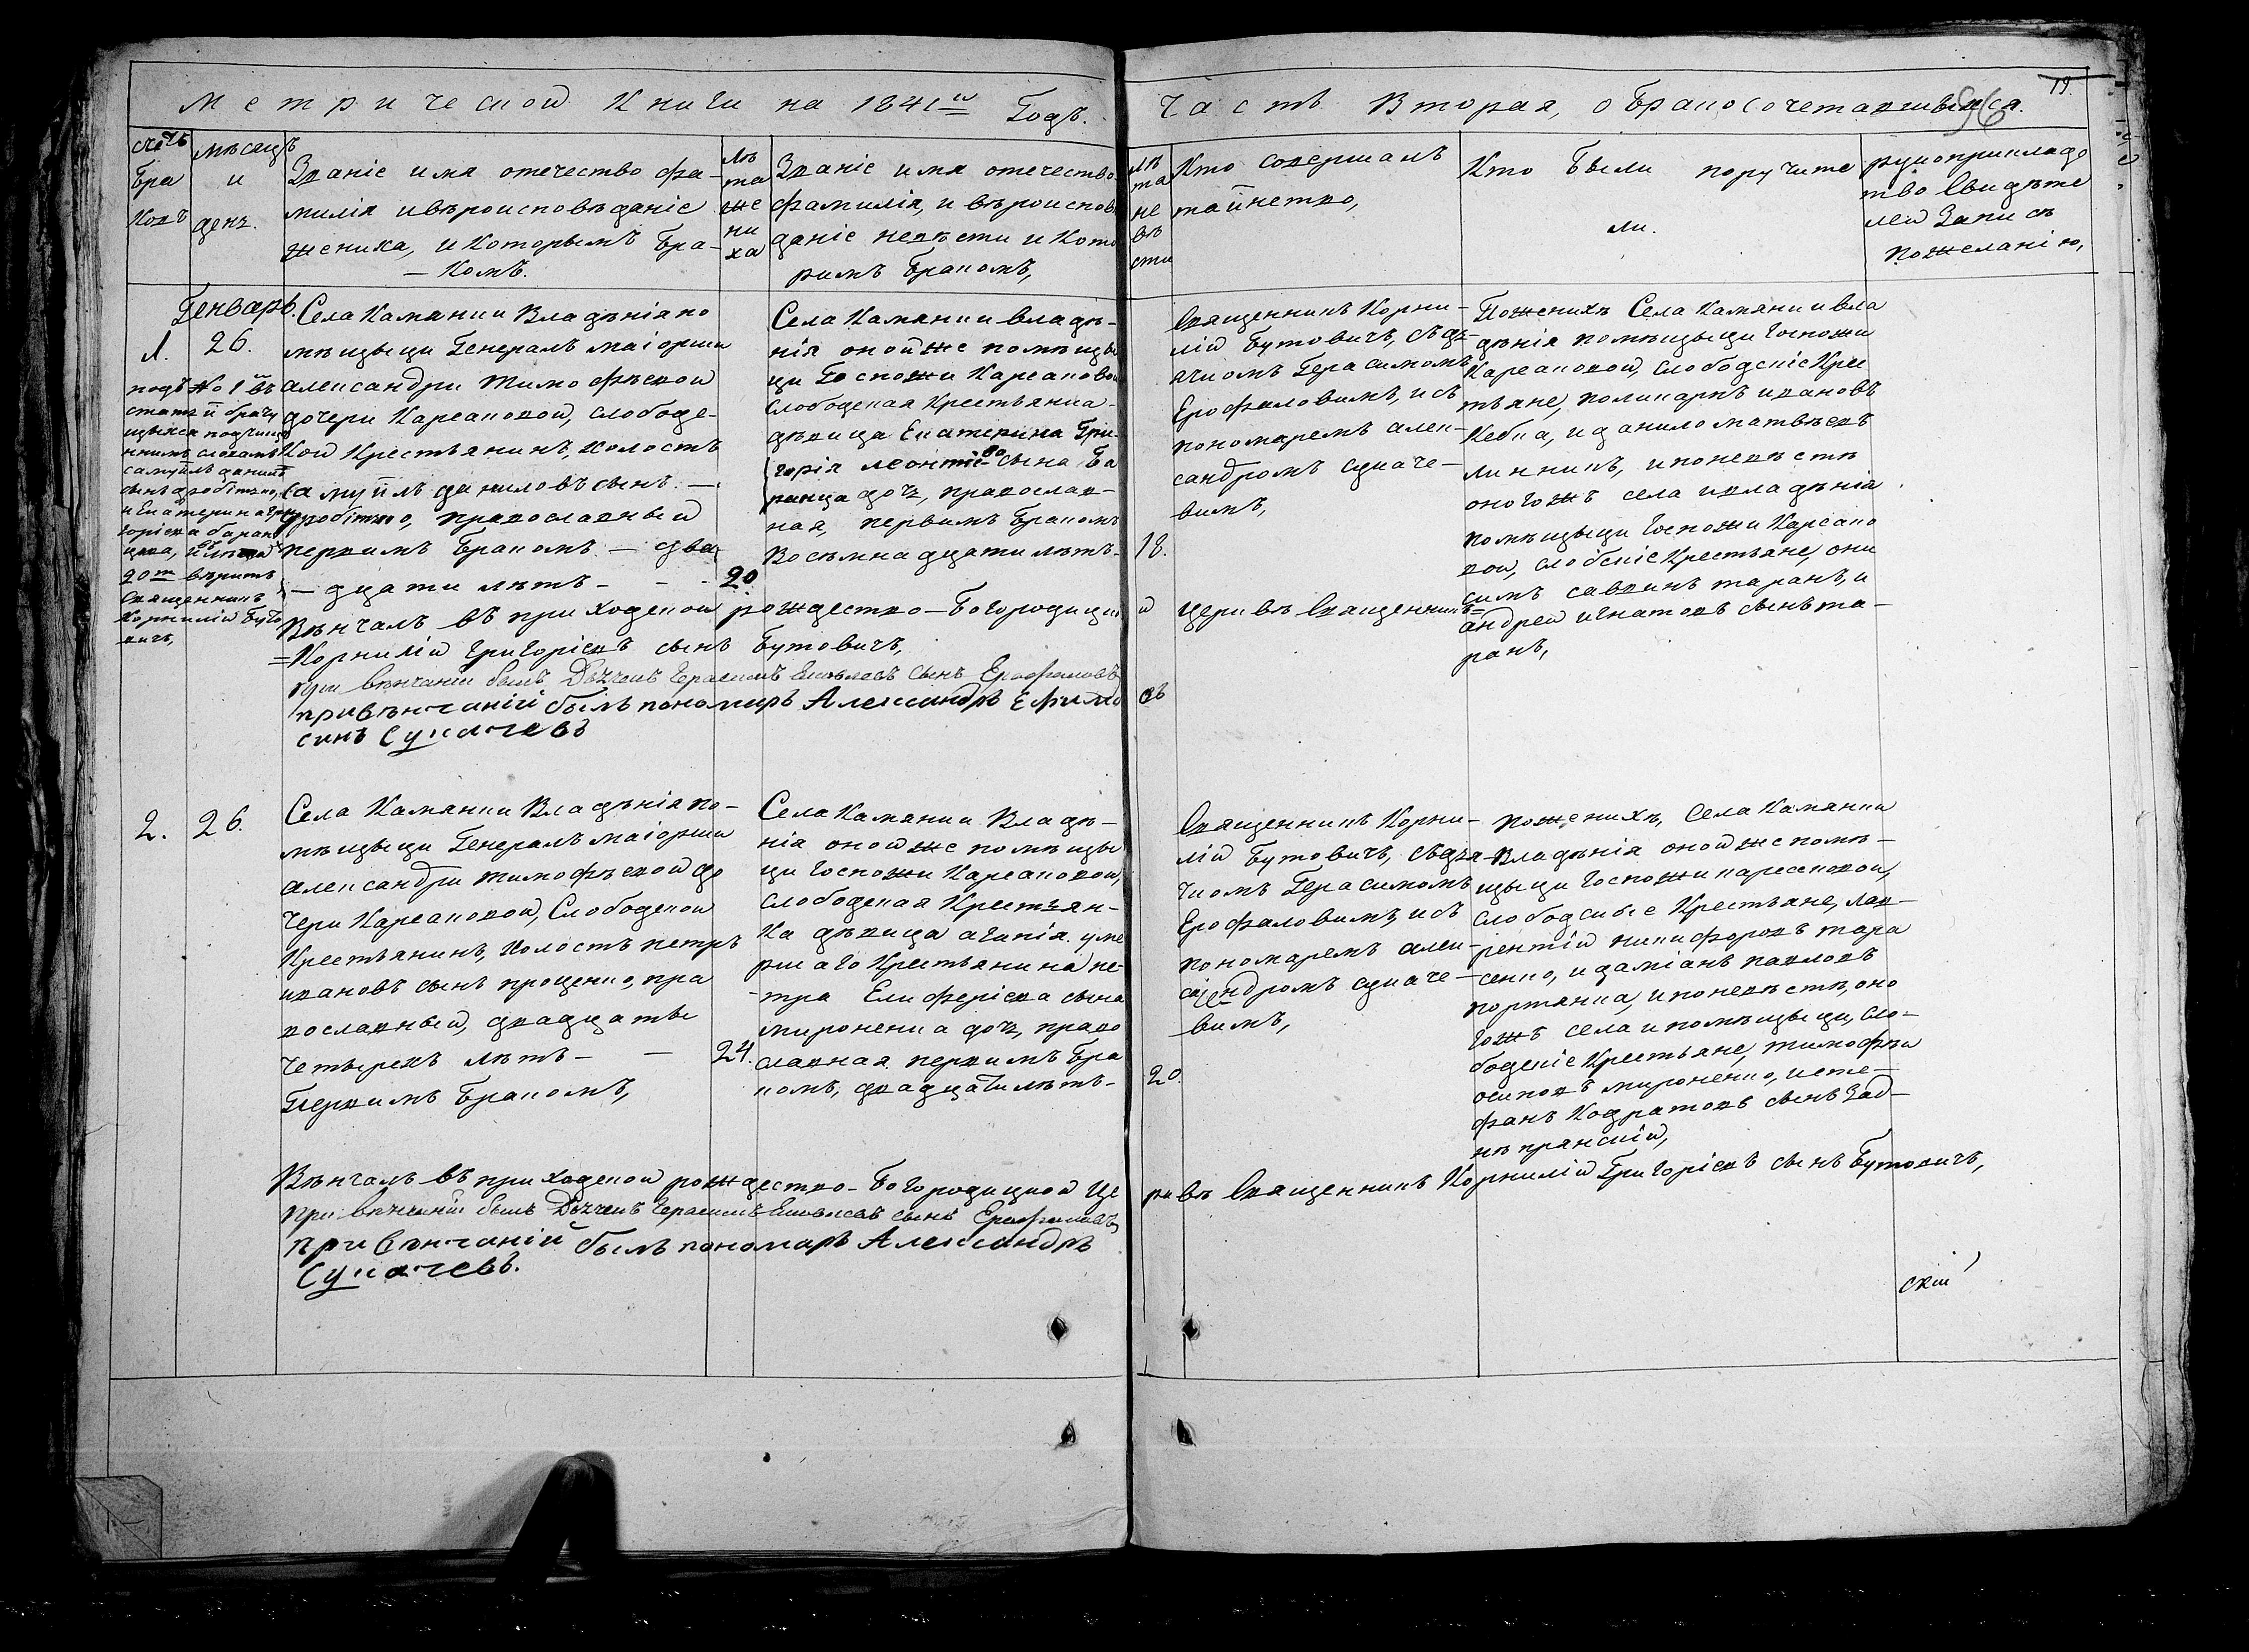 Метрической Книги на 1841й Годъ.
Часть Вторая, о Бракосочетавшихся.
19.
счетъ Бра ковъ
мѣсяцъ и день.
Званіе имя отечество фа-
милія и вѣроисповѣданіе
жениха, и которымъ Бра-
— комъ.
Лѣ
та
же
ни
ха
Званіе имя отечество
фамилія, и вѣроиспов
даніе невѣсти и Кото
римъ Бракомъ,
лѣ
та
не
вѣ
сти
Кто совершалъ
таинство,
Кто были поручите
ли.
рукоприкладс
тво Свидѣте
лей Запись
по желанію,
Генварь.
1.
26.
подъ № 1й въ
статьи брачу
щихся подчище
ннимъ словамъ
самуилъ данил
сынъ дробітко,
и Екатерина Гри
горіева баран
цева,
20т вѣритъ
Священникъ
Корнилій Буто
вичъ,
Села Камянки Владѣнія по
мѣщыци Генералъ маіорши
александри тимофѣевой
дочери Карсановой, слободс-
кой Крестьянинъ, холостъ
Самуилъ даниловъ сынъ —
дробітко, православный
первимъ Бракомъ — два
— дцати лѣтъ — -
20.
Села Камянки владѣ-
нія оной же помѣщы
ци Госпожи Карсановой
слободская Крестьянка
дѣвица Екатерина Гри-
горія леонтіева сына Ба
ранца доч, православ-
ная, первимъ Бракомъ
Восѣмнадцати лѣтъ-
18.
Священникъ Корни-
лій Бутовичъ, съ дья-
чкомъ Герасимомъ
Ерофаловимъ, и съ
пономаремъ алек-
сандромъ сукаче-
вимъ,
Пожениху Села Камянки вла
дѣнія помѣщыци Госпожи
Карсановой, слободскіе Кре
стьяне, поликарпъ ивановъ
Кебка, и данило матвѣевъ
линникъ, и поневѣстѣ
оногожъ села и владѣнія
помѣщыци Госпожи Карсано
вой, слобскіе Крестьяне, они
симъ саввинъ таранъ, и
андрей игнатовъ сынъ та-
ранъ,
Вѣнчалъ въ приходской рождество-Богородицкой церквѣ Священникъ=
=Корнилій Григоріевъ сынъ Бутовичъ,
При вѣнчаніи былъ Дьячекъ Герасимъ сынъ Ерофаловъ
при вѣнчаніи былъ пономарь Александръ Ефимовъ
синъ Сукачевъ
2.
26.
Села Камянки Владѣнія по-
мѣщыци Генералъ маіорши
александри тимофѣевой до
чери Карсановой, Слободской
Крестьянинъ, холостъ петръ
ивановъ сынъ проценко, пра
вославный, двадцаты
четырехъ лѣтъ- —
Первимъ Бракомъ,
24.
Села Камянки Владѣ-
нія оной же помѣщы
ци Госпожи Карсановой,
слободская Крестьян-
ка дѣвица агапія уме
ршаго Крестьянина пе-
-тра Елифѣріева сына
мироненка доч, право
славная первимъ Бра
комъ, двадцати лѣтъ-
20.
Священникъ Корни-
лій Бутовичъ, съ дья-
чкомъ Герасимомъ
Ерофаловимъ, и съ
пономаремъ алек-
сандромъ сукаче-
-вимъ,
пожениху, Села Камянки
Владѣнія оной же помѣ-
щыци Госпожи карсановой,
слободскые Крестьяне, лав-
рентій никифоровъ тара
сенко, и даміанъ павловъ
портянка, и поневѣстѣ, оно
гожъ села и помѣщыци, сло-
бодскіе Крестьяне, тимофѣй
осиповъ мироненко, и сте-
фанъ Кодратовъ сынъ Зад-
нѣпрянскій,
Вѣнчалъ въ приходской рождество-Богородицкой церквѣ Священникъ Корнилій Григоріевъ сынъ Бутовичъ,
При вѣнчаніи былъ Дьячекъ Герасимъ сынъ Ерофаловъ
при вѣнчаніи былъ пономарь Александръ
Сукачевъ.
скій